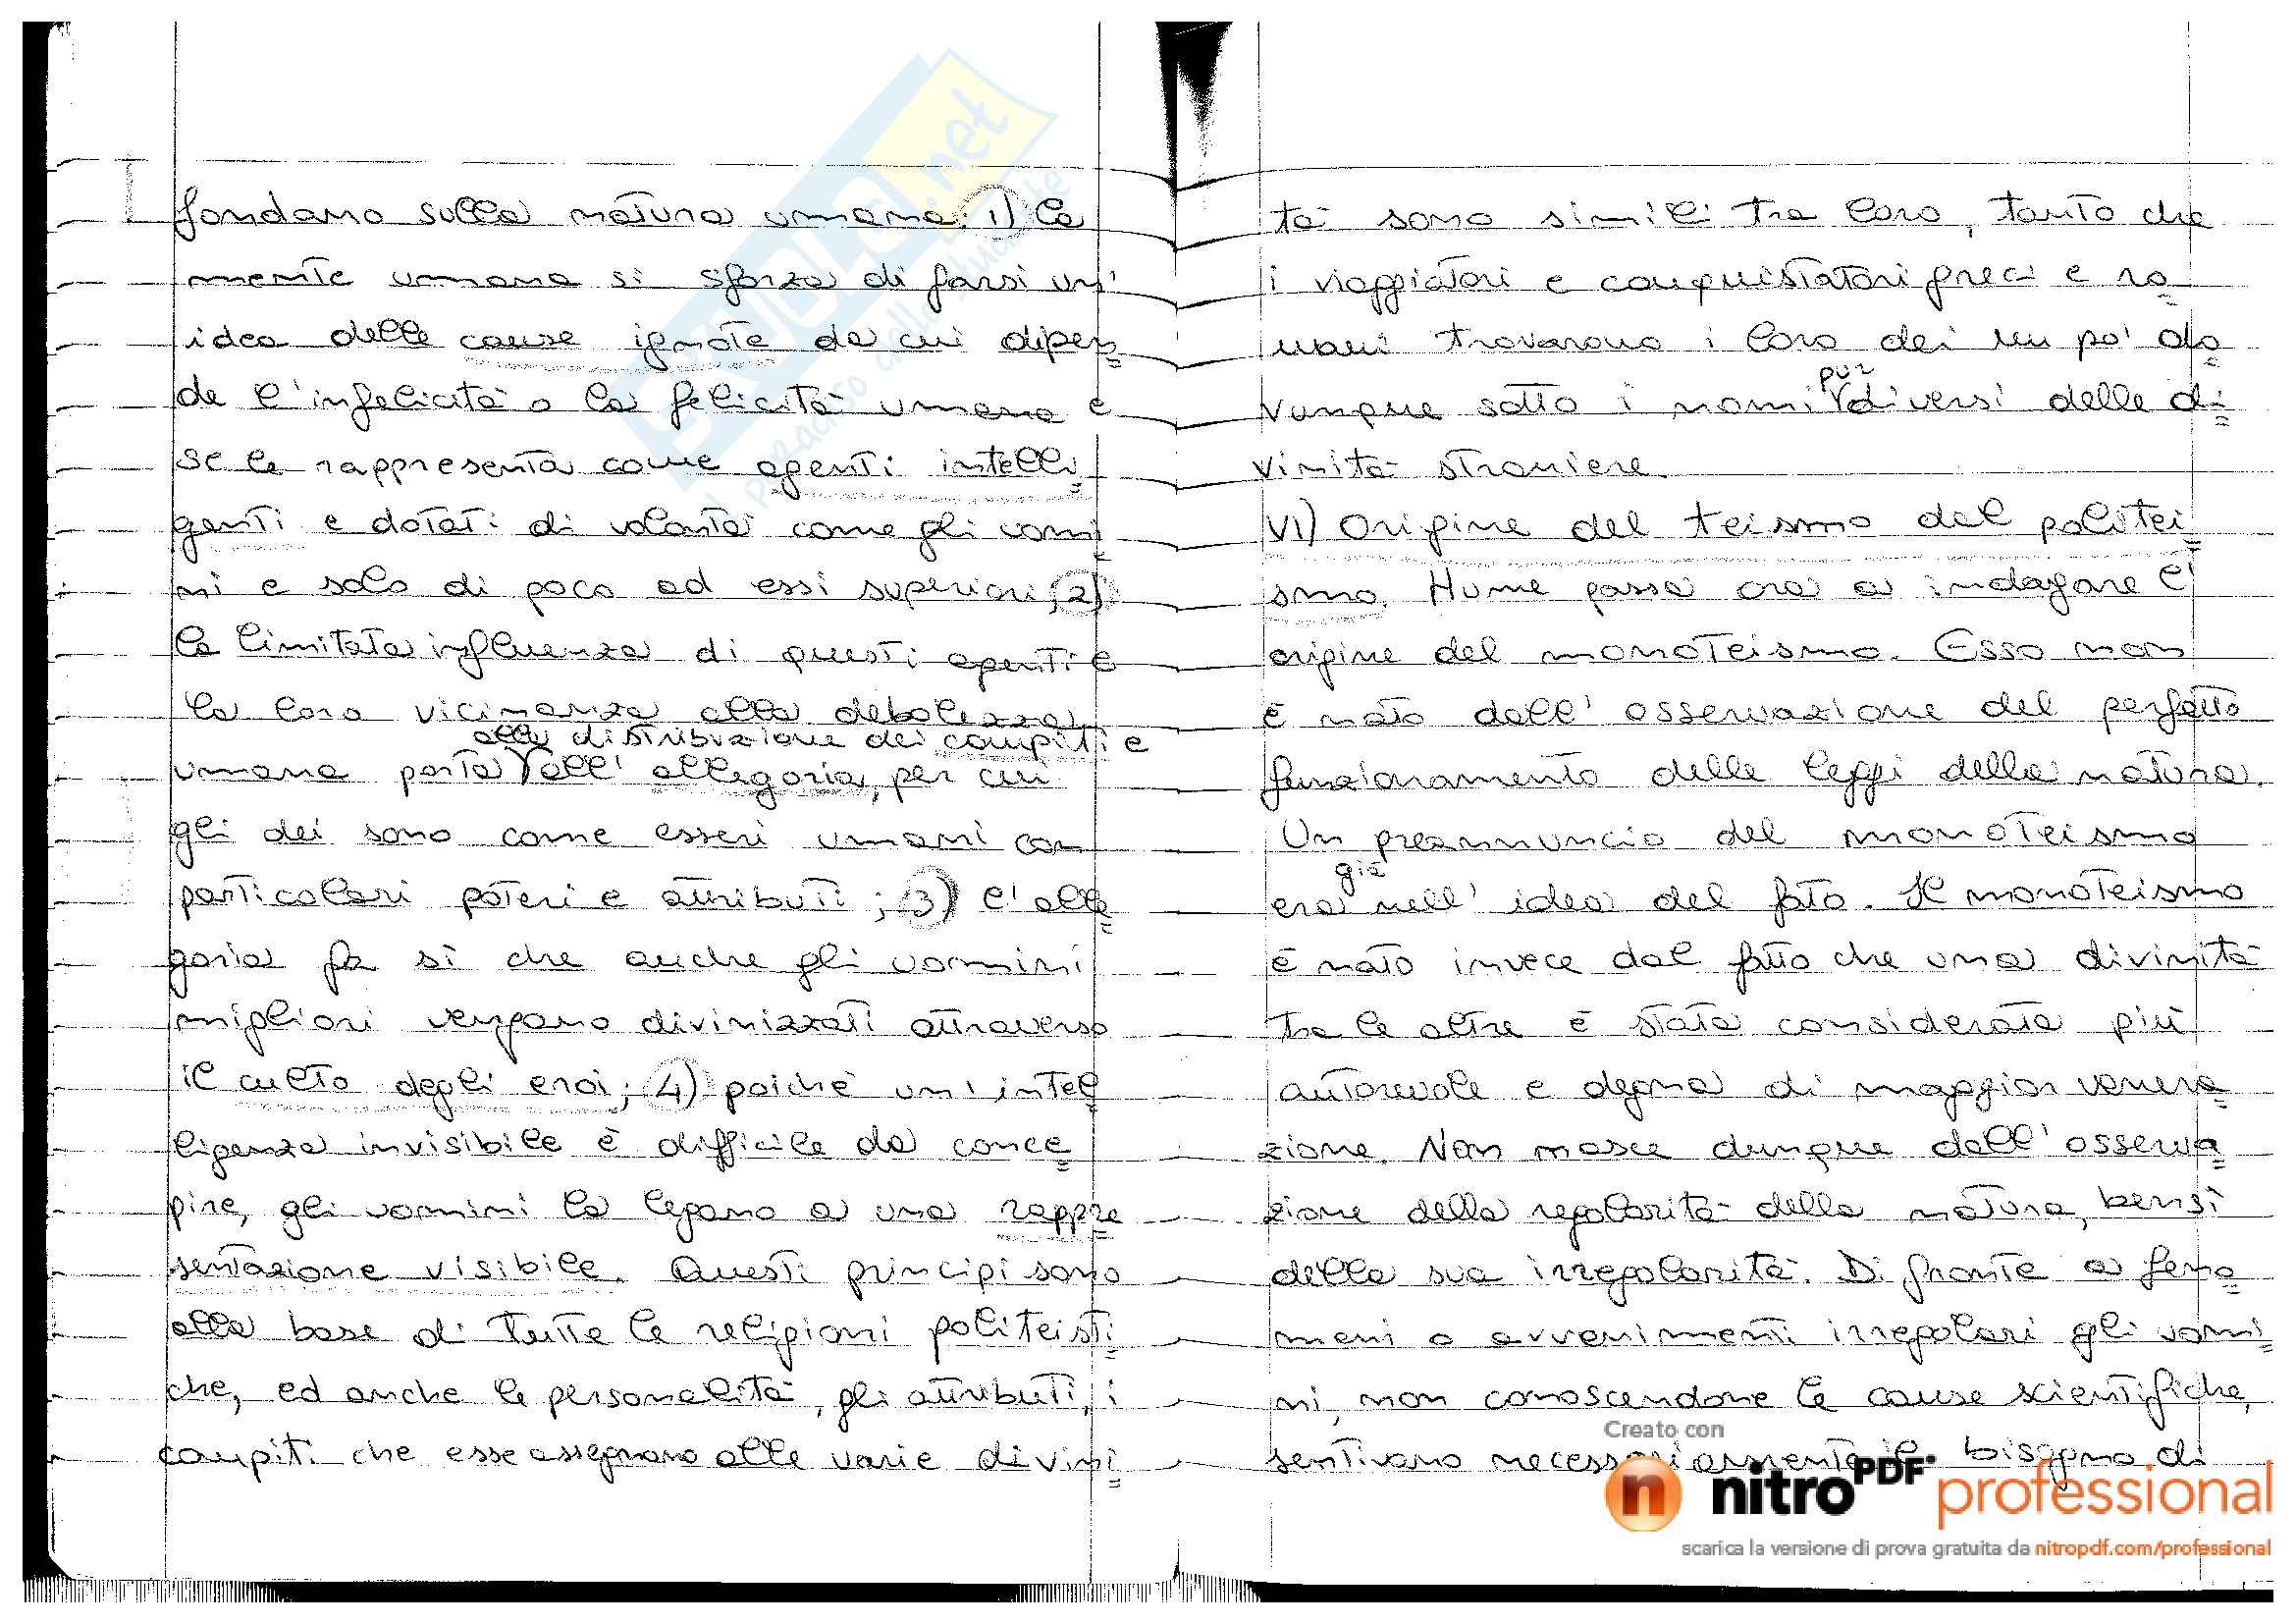 fondano sulla natura umana: 1) la
mente umana si sforza di farsi un'
idea delle cause ignote da cui dipen=
de l'infelicità o la felicità umana e
se le rappresenta come agenti intelli=
genti e dotati di volontà come gli uomi=
ni e solo di poco ad essi superiori; 2)
la limitata influenza di questi agenti e
la loro vicinanza alla debolezza
alla distribuzione dei compiti e
umana porta all'allegoria, per cui
gli dei sono come esseri umani con
particolari poteri e attributi; 3) l'alle=
goria fa sì che anche gli uomini
migliori vengano divinizzati attraverso
il culto degli eroi; 4) poiché un'intel
ligenza invisibile è difficile da conce=
pire, gli uomini la legano a una rappre=
sentazione visibile. Questi principi sono
alla base di tutte le religioni politeisti=
che, ed anche le personalità, gli attributi, i
compiti che esse assegnano alle varie divini=
tà sono simili tra loro, tanto che
i viaggiatori e conquistatori greci e ro=
mani trovarono i loro dei un po' do=
pur
vunque sotto i nomi diversi delle di=
vinità straniere.
VI) Origine del teismo dal politei=
smo. Hume passa ora a indagare l'
origine del monoteismo. Esso non
è nato dall'osservazione del perfetto
funzionamento delle leggi della natura.
Un preannuncio del monoteismo
già
era nell'idea del fato. Il monoteismo
è nato invece dal fatto che una divinità
tra le altre è stata considerata più
autorevole e degna di maggior venera=
zione. Non nasce dunque dall'osserva=
zione della regolarità della natura, bensì
della sua irregolarità. Di fronte a feno=
meni o avvenimenti irregolari gli uomi=
ni, non conoscendone le cause scientifiche,
sentivano necessariamente il bisogno di
Creato con
nitroPDF professional
scarica la versione di prova gratuita da nitropdf.com/professional